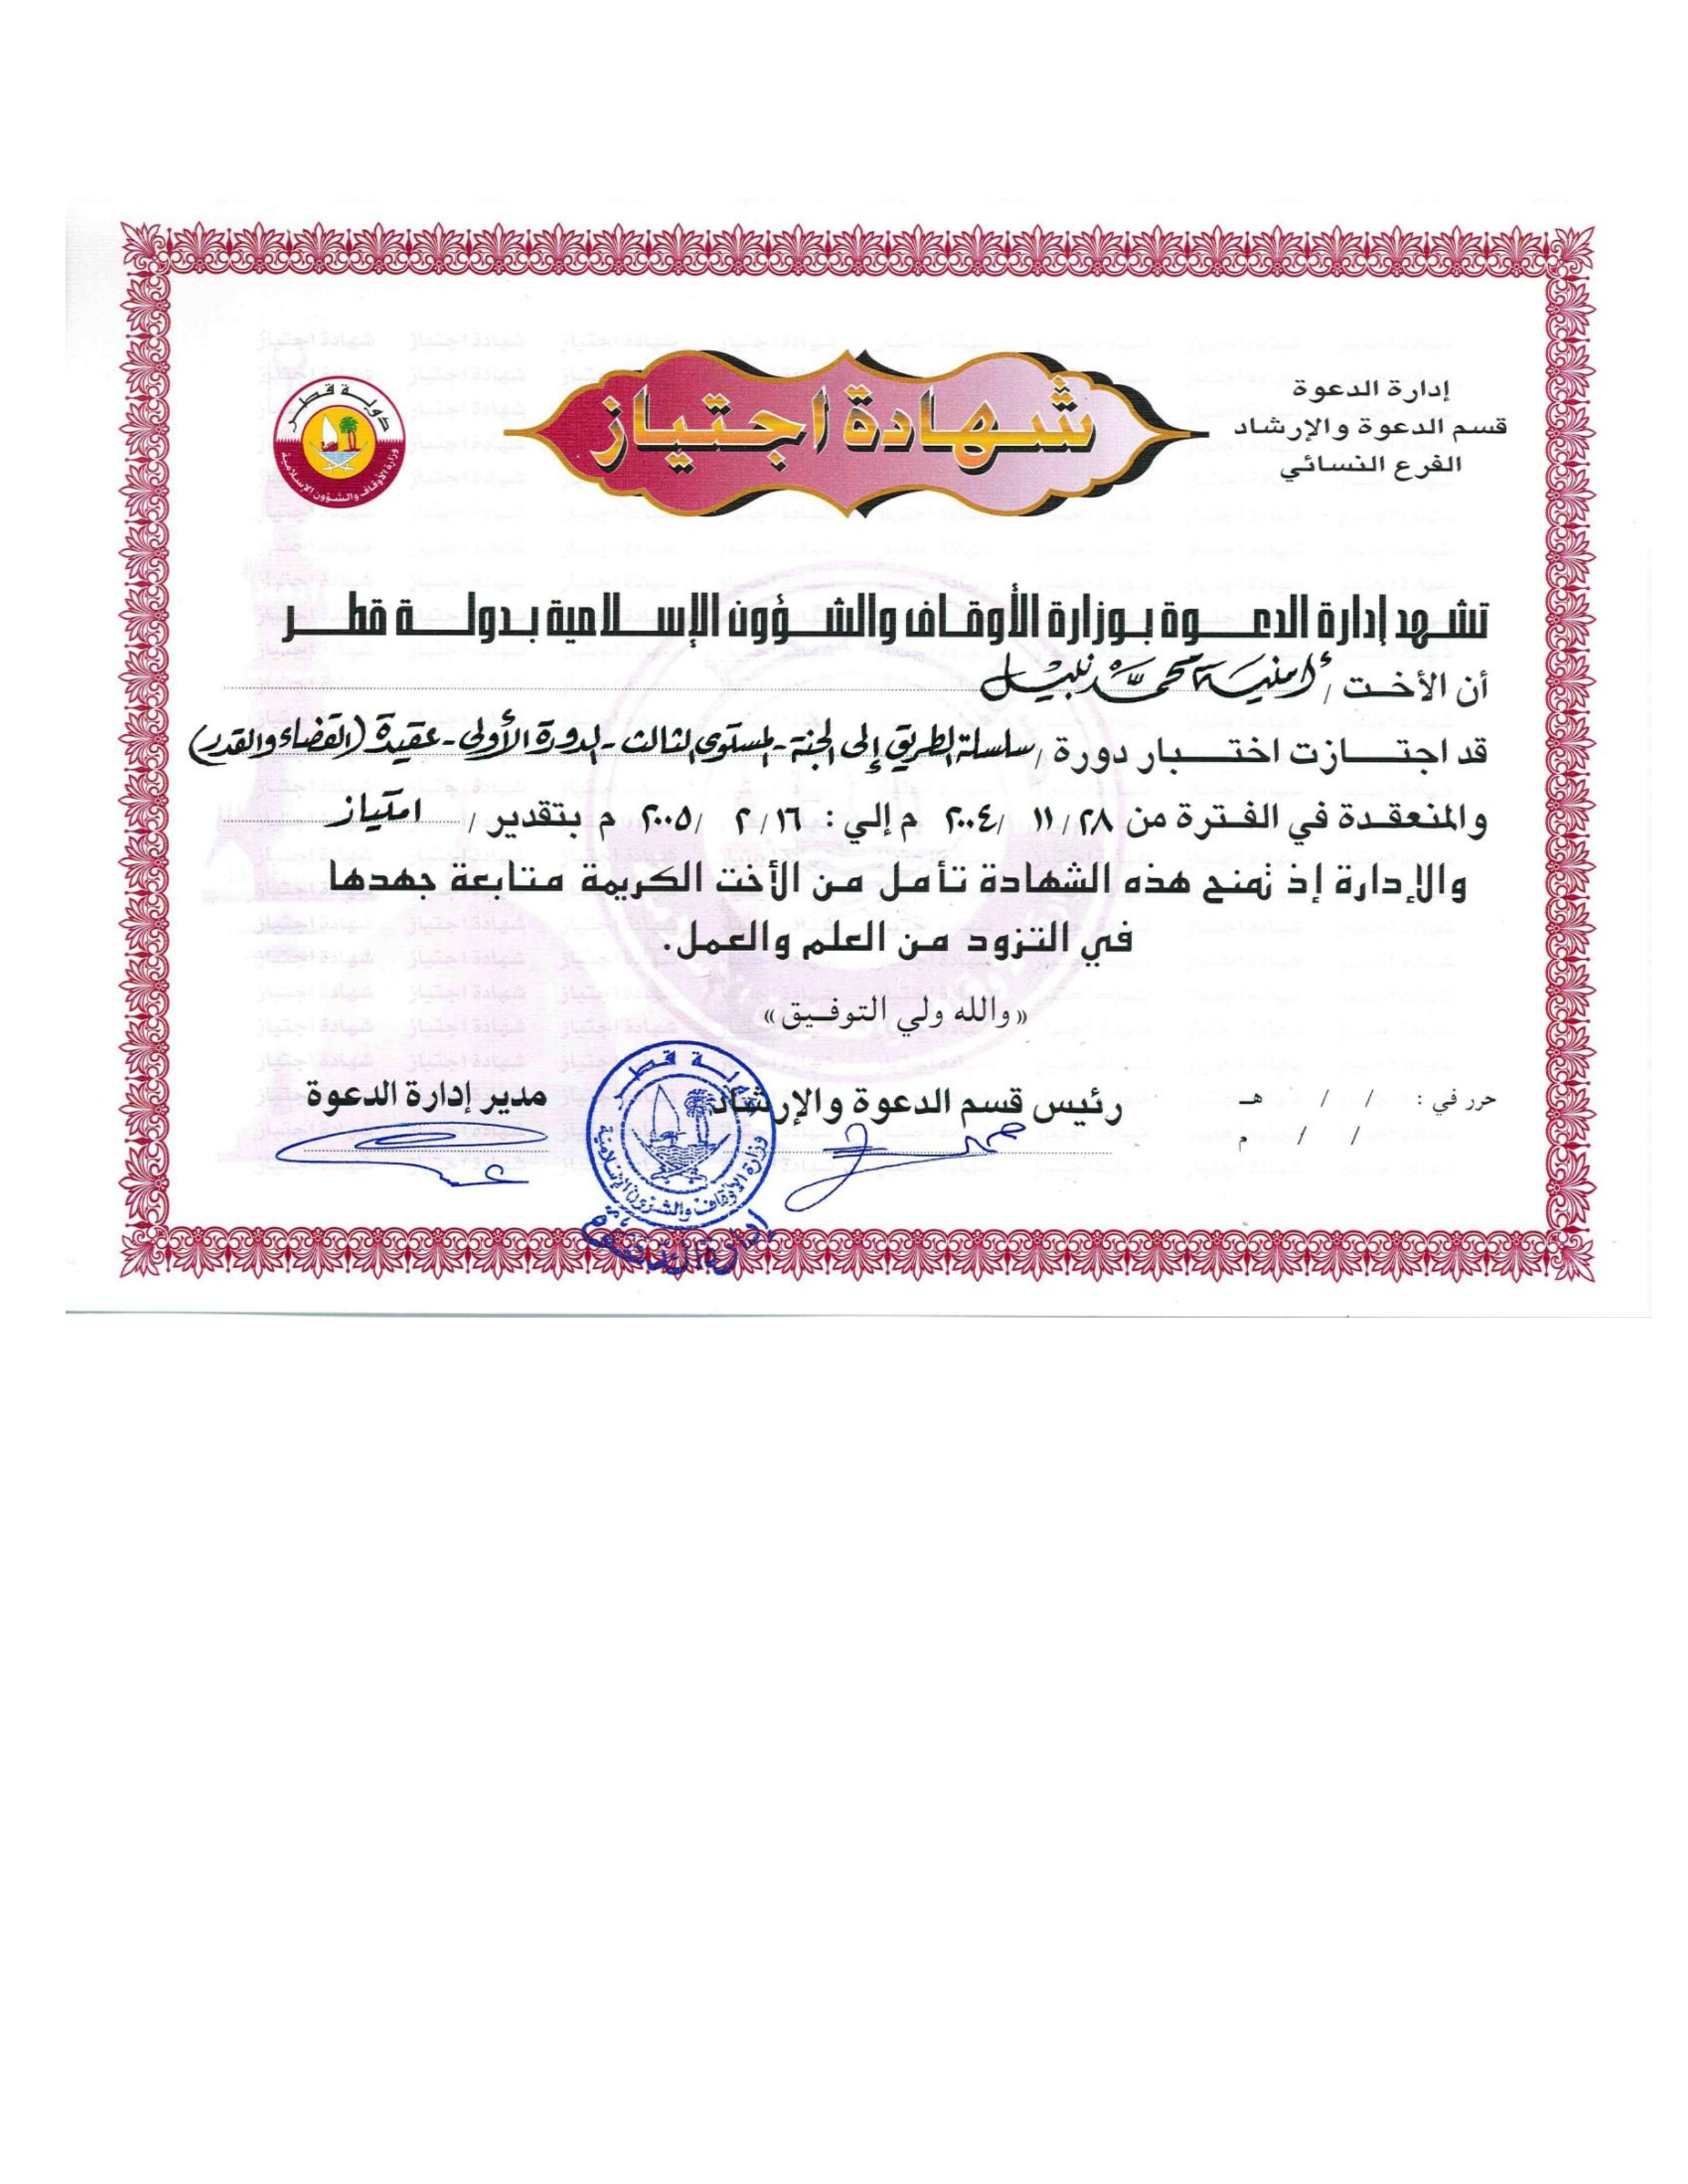 إدارة الدعوة
قسم الدعوة والإرشاد
الفرع النسائي
شهادة اجتياز
دولة قطر
وزارة الأوقاف والشؤون الإسلامية
تشهد إدارة الدعوة بوزارة الأوقاف والشؤون الإسلامية بدولة قطر
أن الأخت / أمنية محمد نبيل
قد اجتازت اختبار دورة / سلسلة الطريق إلى الجنة - المستوى الثالث - الدورة الأولى - عقيدة (القضاء والقدر)
والمنعقدة في الفترة من ٢٨ / ١١ / ٢٠٠٤ م إلي : ١٦ / ٢ / ٢٠٠٥ م بتقدير / امتياز
والإدارة إذ تمنح هذه الشهادة تأمل من الأخت الكريمة متابعة جهدها
في التزود من العلم والعمل.
«والله ولي التوفيق»
حرر في : / / هـ
/ / م
رئيس قسم الدعوة والإرشاد
مدير إدارة الدعوة
دولة قطر
وزارة الأوقاف والشئون الإسلامية
إدارة الدعوة